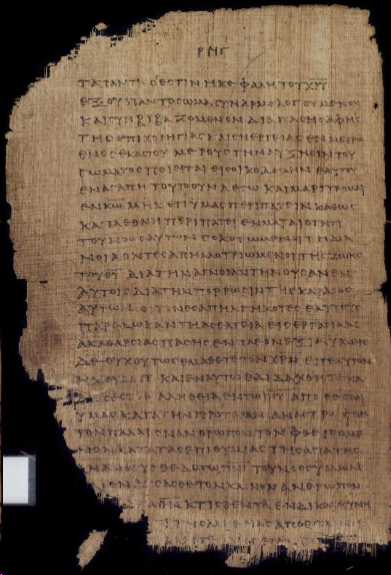 ΡΝΓ
ΤΑ ΠΑΝΤΑ ΟϹ ΕϹΤΙΝ Η ΚΕΦΑΛΗ ΤΟΥ ΧΡΥ
ΕΞ ΟΥ ΠΑΝ ΤΟ ϹΩΜΑ ϹΥΝΑΡΜΟΛΟΓΟΥΜΕΝΟΝ
ΚΑΙ ϹΥΝΒΙΒΑΖΟΜΕΝΟΝ ΔΙΑ ΠΑϹΗϹ ΑΦΗϹ
ΤΗϹ ΕΠΙΧΟΡΗΓΙΑϹ ΚΑΙ ΕΝΕΡΓΕΙΑϹ ΕΝ ΜΕΤΡΩ
ΕΝΟϹ ΕΚΑϹΤΟΥ ΜΕΡΟΥϹ ΤΗΝ ΑΥΞΗϹΙΝ ΤΟΥ
ϹΩΜΑΤΟϹ ΠΟΙΕΙΤΑΙ ΕΙϹ ΟΙΚΟΔΟΜΗΝ ΕΑΥΤΟΥ
ΕΝ ΑΓΑΠΗ ΤΟΥΤΟ ΟΥΝ ΛΕΓΩ ΚΑΙ ΜΑΡΤΥΡΟΜΑΙ
ΕΝ ΚΩ ΜΗΚΕΤΙ ΥΜΑϹ ΠΕΡΙΠΑΤΕΙΝ ΚΑΘΩϹ
ΚΑΙ ΤΑ ΕΘΝΗ ΠΕΡΙΠΑΤΕΙ ΕΝ ΜΑΤΑΙΟΤΗΤΙ
ΤΟΥ ΝΟΟϹ ΑΥΤΩΝ ΕϹΚΟΤΩΜΕΝΟΙ ΤΗ ΔΙΑ
ΝΟΙΑ ΟΝΤΕϹ ΑΠΗΛΛΟΤΡΙΩΜΕΝΟΙ ΤΗϹ ΖΩΗϹ
ΤΟΥ ΘΥ ΔΙΑ ΤΗΝ ΑΓΝΟΙΑΝ ΤΗΝ ΟΥϹΑΝ ΕΝ
ΑΥΤΟΙϹ ΔΙΑ ΤΗΝ ΠΩΡΩϹΙΝ ΤΗϹ ΚΑΡΔΙΑϹ
ΑΥΤΩΝ ΟΙΤΙΝΕϹ ΑΠΗΛΓΗΚΟΤΕϹ ΕΑΥΤΟΥϹ
ΠΑΡΕΔΩΚΑΝ ΤΗ ΑϹΕΛΓΕΙΑ ΕΙϹ ΕΡΓΑϹΙΑΝ
ΑΚΑΘΑΡϹΙΑϹ ΠΑϹΗϹ ΕΝ ΠΛΕΟΝΕΞΙΑ ΥΜΕΙϹ
ΔΕ ΟΥΧ ΟΥΤΩϹ ΕΜΑΘΕΤΕ ΤΟΝ ΧΡΝ ΕΙ ΓΕ ΑΥΤΟΝ
ΚΑΙ ΕΝ ΑΥΤΩ
ΑΛΗΘΕΙΑ ΕΝ ΤΩ ΙΗΥ ΑΠΟΘΕϹΘΑΙ
ΥΜΑϹ ΚΑΤΑ ΤΗΝ ΠΡΟΤΕΡΑΝ ΑΝΑϹΤΡΟΦΗΝ
ΤΟΝ ΠΑΛΑΙΟΝ ΑΝΘΡΩΠΟΝ ΤΟΝ ΦΘΕΙΡΟΜΕ
ΚΑΤΑ ΤΑϹ ΕΠΙΘΥΜΙΑϹ ΤΗϹ ΑΠΑΤΗϹ
ΤΟΥ ΝΟΟϹ ΥΜΩΝ
ΚΑΙΝΟΝ ΑΝΘΡΩΠΟΝ
ΚΤΙϹΘΕΝΤΑ ΕΝ ΔΙΚΑΙΟϹΥΝΗ